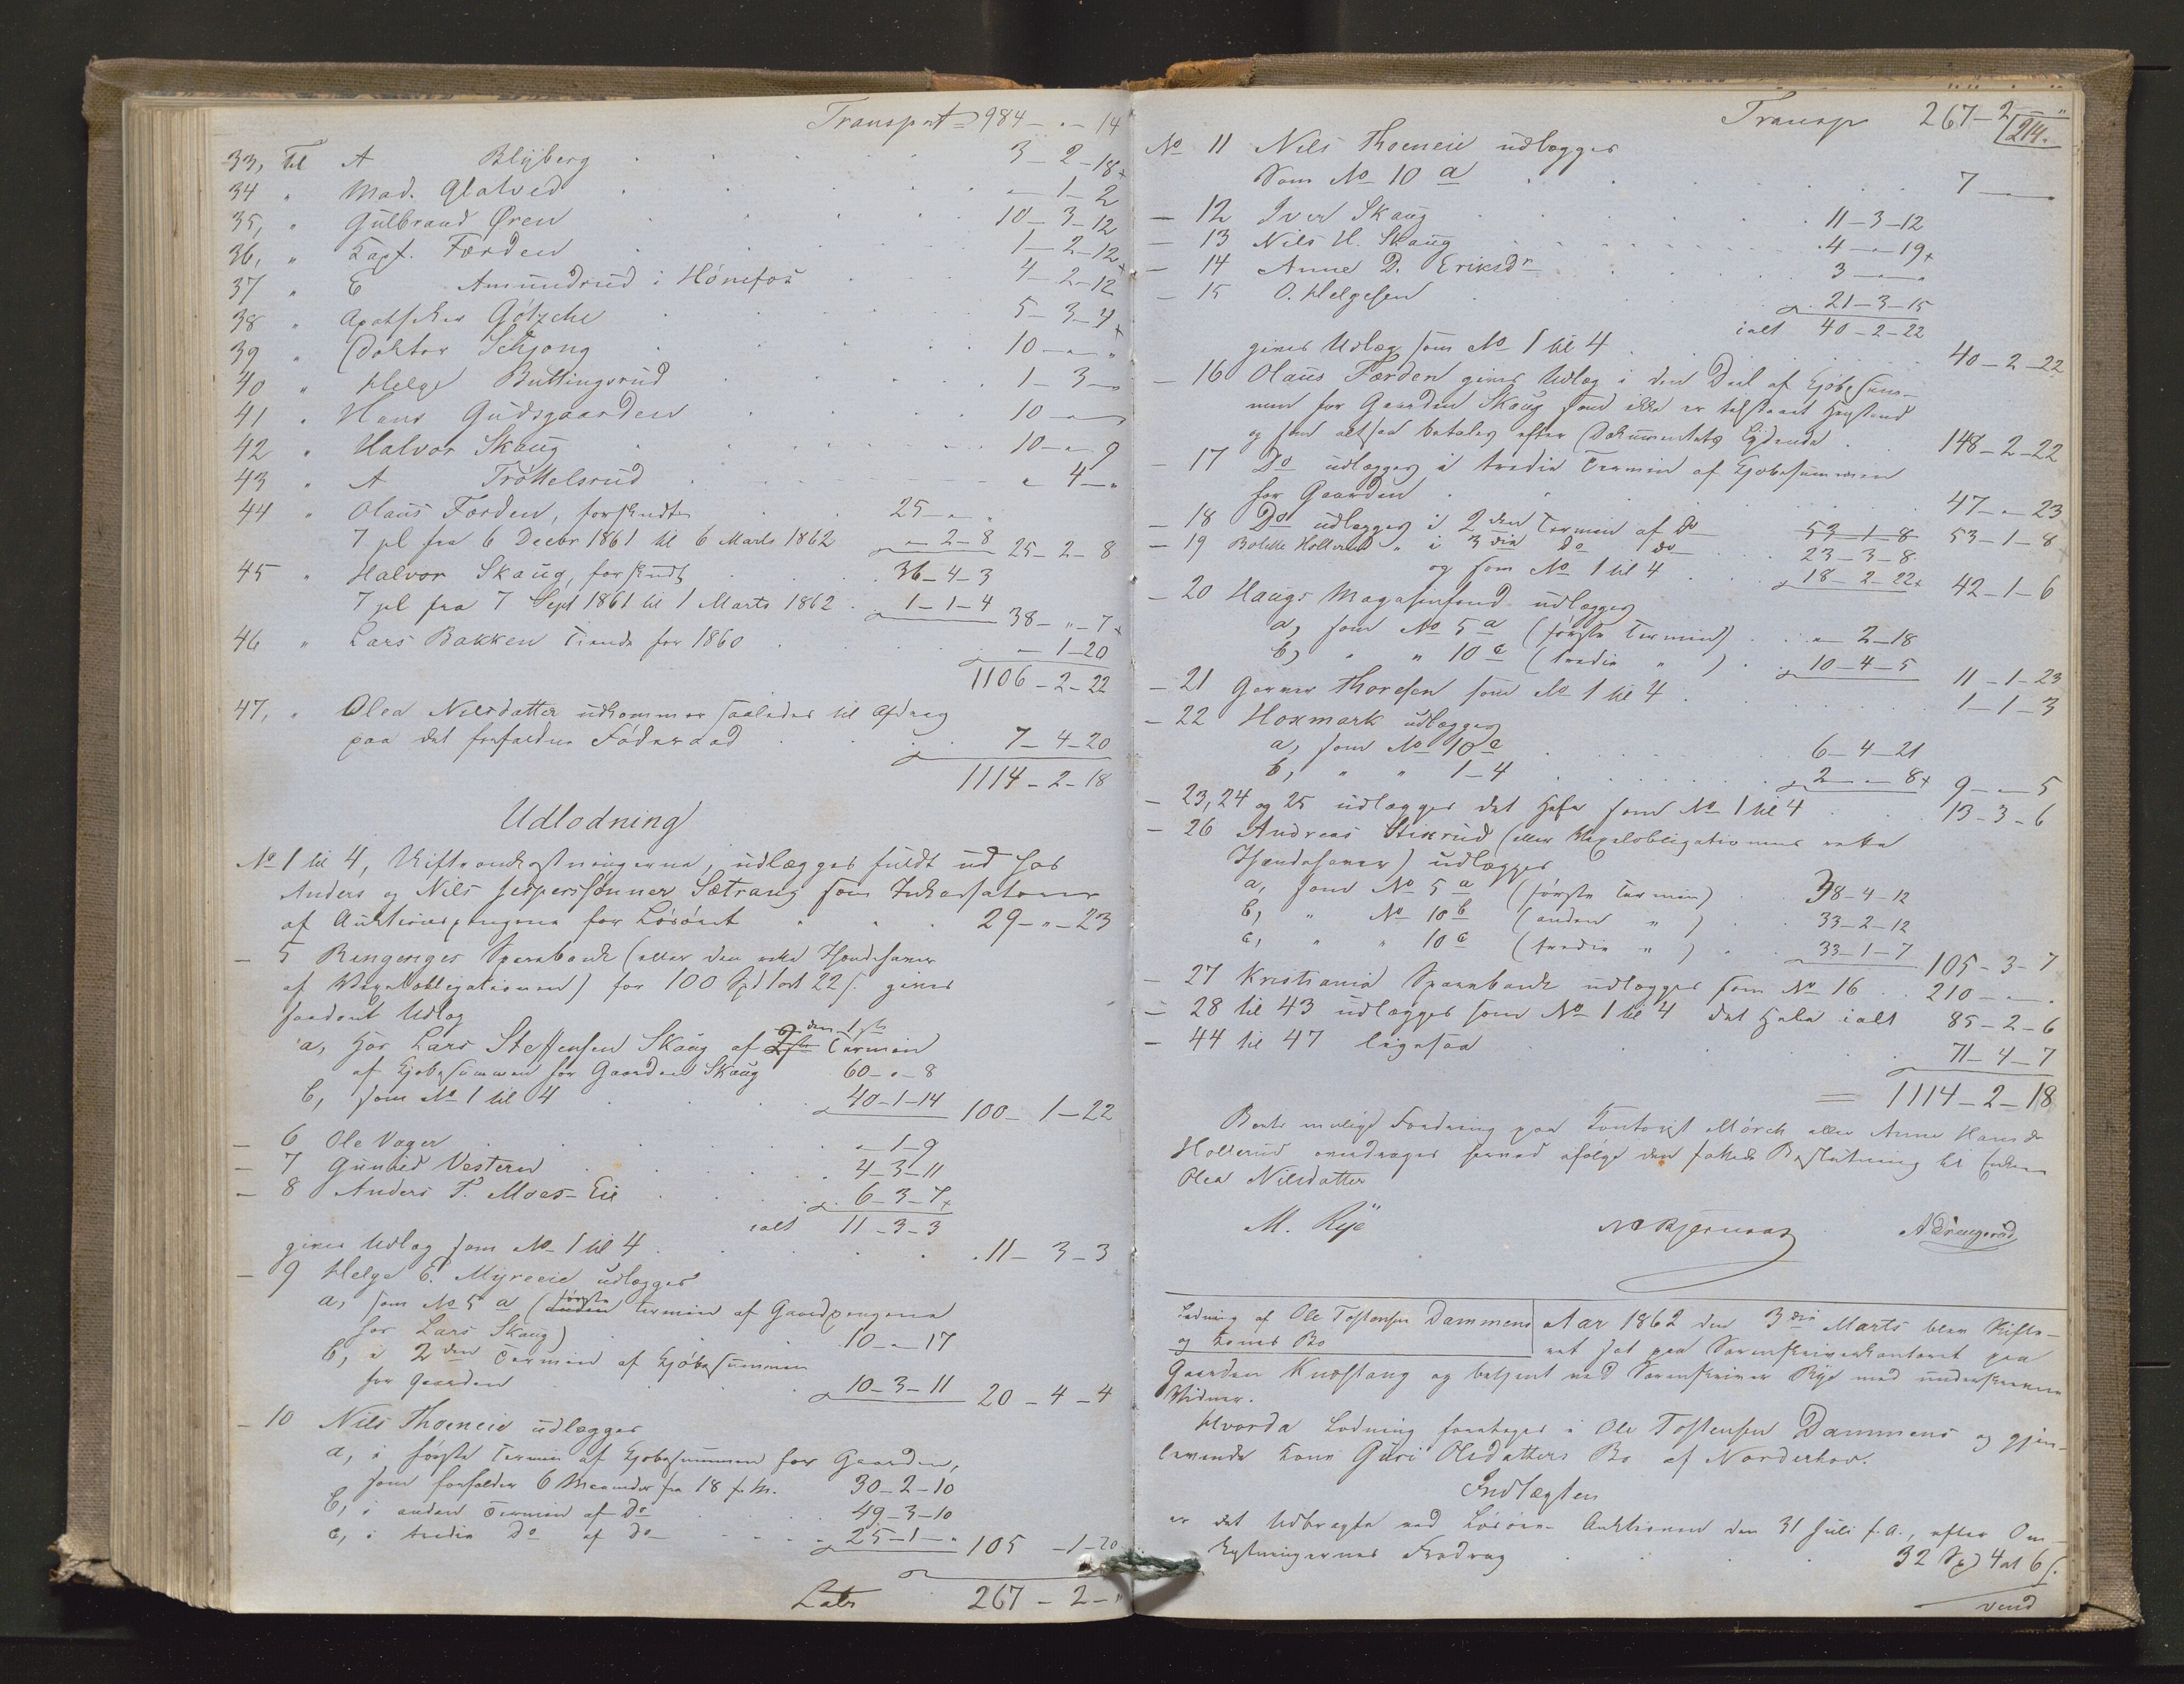 Transport 984 - " - 14
33, Til A Blyberg . . . 3 - 2 - 18+
34 " Mad. Glatved . . . " - 1 - 2
35, " Gulbrand Øren . . . 10 - 3 - 12
36, " Capt. Færden . . . 1 - 2 - 12+
37 " E Amundrud i Hønefos . 4 - 2 - 12
38 " Apotheker Götzche . . . 5 - 3 - 4+
39 " Doktor Schjong . . . 10 - " - "
40 " Helge Buttingsrud . . . 1 - 3 - "
41 " Hans Gudsgaarden . . . 10 - " - "
42 " Halvor Skaug . . . 10 - " - 9
43 " A Trottelsrud . . . " 4 - "
44 " Olaus Færden, forskudte . . 25 - " - "
7 pl fra 6 Decbr 1861 til 6 Marts 1862 " - 2 - 8 25 - 2 - 8
45 " Halvor Skaug, forskudt . . 36 - 4 - 3
7 pl fra 7 Sept 1861 til 1 Marts 1862 . 1 - 1 - 4 38 - " - 7+
46 " Lars Bakken Tiende for 1860 . . . " - 1 - 20
1106 - 2 - 22
47, " Olea Nilsdatter udkommer saaledes til Afdrag
paa det forfaldne Föderaad . . 7 - 4 - 20
1114 - 2 - 18
Udlodning
No 1 til 4, Skifteomkostningerne, udlægges fuldt ud hos
Anders og Nils Jespersönner Sætrang som Inkassatorer
af Auktionspengene for Lösöret . . . 29 - " - 23
- 5 Ringeriges Sparebank (eller den rette Ihændehaver
af Vexelobligationen) for 100 Spd 1 ort 22 s. gives
saadant Udlæg
a, hos Lars Steffensen Skaug af den 1ste Termin
af Kjøbesummen for Gaarden Skaug 60 - " - 8
b, som No 1 til 4 . . . 40 - 1 - 14 100 - 1 - 22
- 6 Ole Vager . . . " - 1 - 9
- 7 Gunild Vestern . . . 4 - 3 - 11
- 8 Anders P. Moes-Eie . . . 6 - 3 - 7+
ialt 11 - 3 - 3
gives Udlæg som No 1 til 4 . . . 11 - 3 - 3
- 9 Helge E. Myreeie udlægges
a, som No 5 a (anden første Termin af Gaardpengene
hos Lars Skaug) . . . 10 - " - 17
b, i 2den Termin af Kjöbesummen
for Gaarden . . . 10 - 3 - 11 20 - 4 - 4
- 10 Nils Thoeneie udlægges
a, i første Termin af Kjøbesummen for Gaarden,
som forfalder 6 Maaneder fra 18 f. M. 30 - 2 - 10
b, i anden Termin af Do . . . 49 - 3 - 10
c, i tredie Do af Do . . . 25 - 1 - " 105 - 1 - 20
Lats 267 - 2 - "
Transp 267 - 2 - "
214.
No 11 Nils Thoeneie udlægges
Som No 10 a . . . 7 - " - "
- 12 Iver Skaug . . . 11 - 3 - 12
- 13 Nils H. Skaug . . . 4 - " - 19+
- 14 Anne D. Eriksdr . . . 3 - " - "
- 15 O. Helgesen . . . 21 - 3 - 15
ialt 40 - 2 - 22
gives Udlæg som No 1 til 4 . . . 40 - 2 - 22
- 16 Olaus Færden gives Udlæg i den Deel af Kjöbesum-
men for Gaarden Skaug som ikke er tilstaaet Henstand
og som altsaa betales efter Dokumentets Lydende . 148 - 2 - 22
- 17 Do udlægges i tredie Termin af Kjøbesummen
for Gaarden . . . 47 - " - 23
- 18 Do udlægges i 2den Termin af Do 53 - 1 - 8 53 - 1 - 8
- 19 Bolette Hollerud " i 3die Do do . . 23 - 3 - 8
og som No 1 til 4 . . . 18 - 2 - 22+ 42 - 1 - 6
- 20 Haugs Magasinfond udlægges
a, som No 5 a (første Termin) . . " - 2 - 18
b, " " 10 c (tredie " ) . . 10 - 4 - 5 11 - 1 - 23
- 21 Garver Thoresen som No 1 til 4 . . . 1 - 1 - 3
- 22 Hoxmark udlægges
a, som No 10 c . . . 6 - 4 - 21
b, " " 1 - 4 . . . 2 - " - 8+ 9 - " - 5
- 23, 24 og 25 udlægges det Hele som No 1 til 4 . . 13 - 3 - 6
- 26 Andreas Stixrud (eller Vexelobligationens rette
Ihændehaver) udlægges
a, som No 5 a (første Termin) . 38 - 4 - 12
b, " No 10 b (anden " ) . 33 - 2 - 12
c, " " 10 c (tredie " ) . 33 - 1 - 7 105 - 3 - 7
- 27 Kristiania Sparebank udlægges som No 16 . . 210 - " - "
- 28 til 43 udlægges som No 1 til 4 det Hele ialt 85 - 2 - 6
- 44 til 47 ligesaa . . . 71 - 4 - 7
= 1114 - 2 - 18
Boets mulige Fordring paa Kontorist Mörch eller Anne Hansdr
Hollerud overdrages herved ifölge den fattede Beslutning til Enken
Olea Nilsdatter
M. Rye
Lodning af Ole Tostensen Dammens
og Kones Bo
Aar 1862 den 3die Marts blev Skifte-
ret sat paa Sorenskriverkontoret paa
Gaarden Knestang og betjent ved Sorenskriver Rye med underskrevne
Vidner.
Hvorda Lodning foretages i Ole Tostensen Dammens og gjen-
levende Kone Guri Olsdatters Bo af Norderhov.
Indtægten
er det Udbragte ved Lösöre-Auktionen den 31 Juli f. A., efter Om-
kostningernes Fradrag . . . 32 Spd 4 ort 6 s.
vend